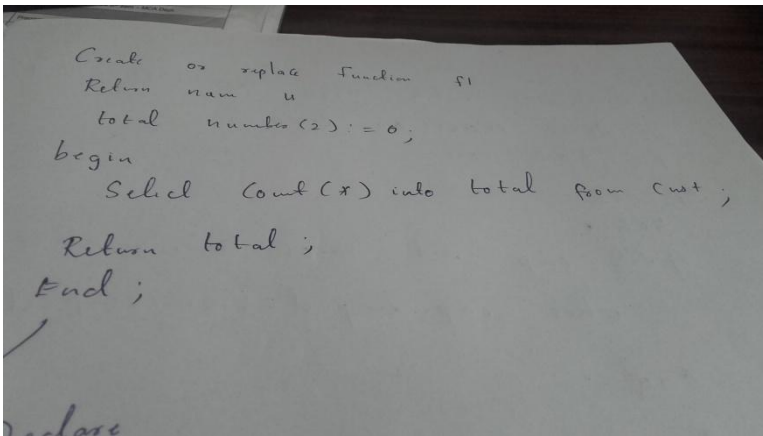 Create or replace function f1
Return num is
total number(2) := 0;
begin
Select Count(*) into total from Cust;
Return total;
End;
/
Declare